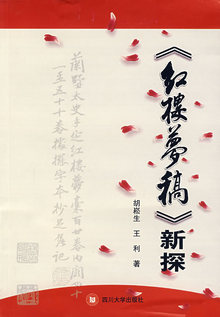 《紅樓夢稿》新探
胡崧生 王利 著
蘭墅太史手定紅樓夢稾百廿卷内闕四十
一至五十十卷據擺字本抄足繼記
四川大学出版社